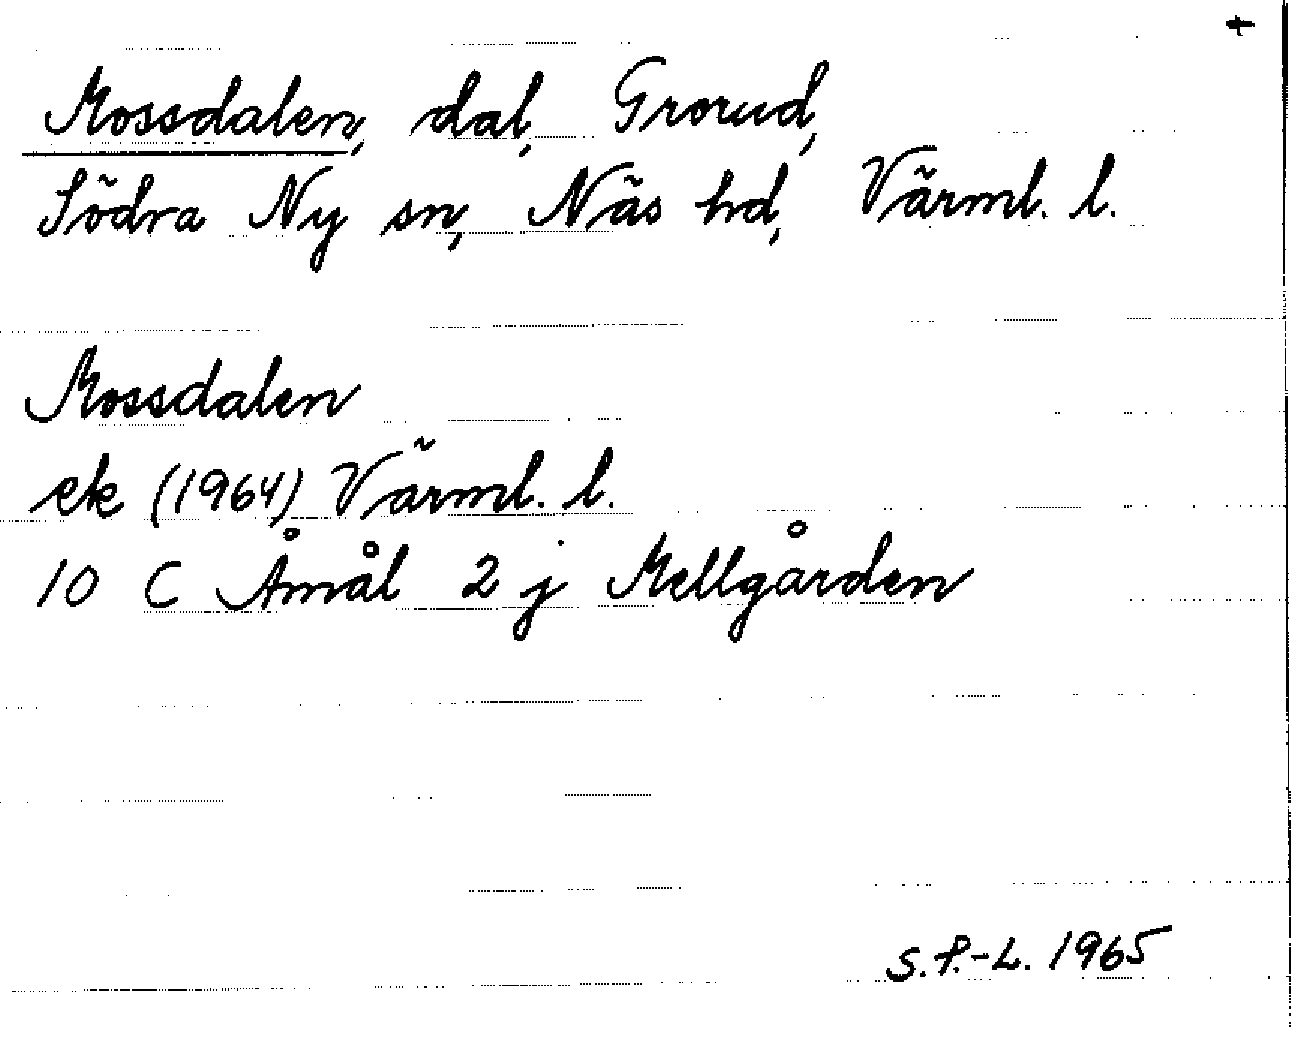 +
Mossdalen, dal, Grorud,
Södra Ny sn, Näs hd, Värml. l.
Mossdalen
ek (1964) Värml. l.
10 C Åmål 2 j Mellgården
S.P.-L. 1965